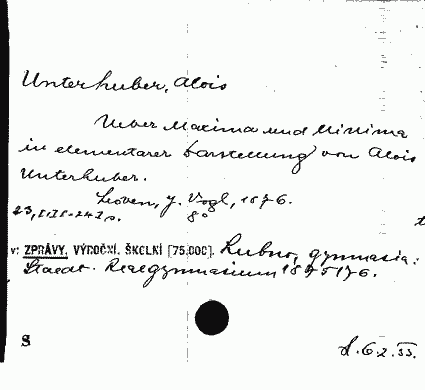 Unterhuber, Alois
Ueber Maxima und Minima
in elementarer Darstellung von Alois
Unterhuber.
Leoben, J. Vogl, 1876.
8°
v: ZPRÁVY. VÝROČNÍ. ŠKOLNÍ [75.000]. gymnasia:
Staedt. Realgymnasium 1875/76.
S